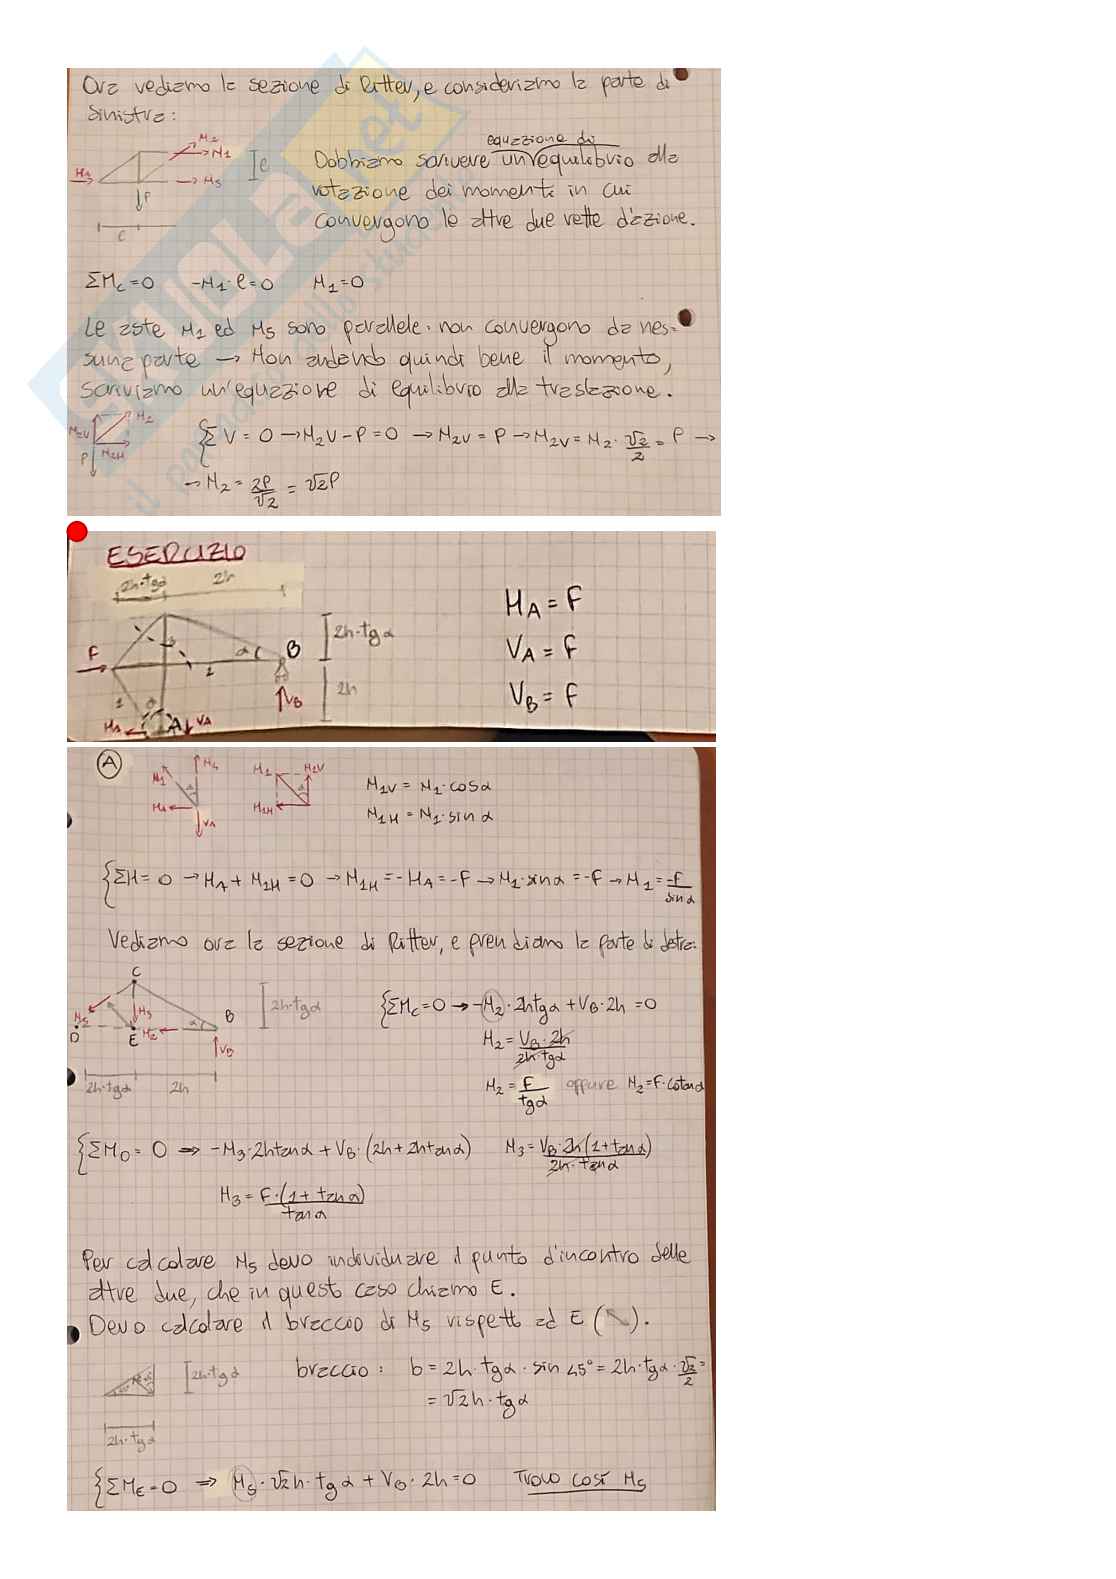 Ora vediamo la sezione di Ritter, e consideriamo la parte di
sinistra:
N2
N1
HA
N5
P
l
l
equazione di
Dobbiamo scrivere un'equilibrio alla
rotazione dei momenti in cui
convergono le altre due rette d'azione.
ΣMc=0 -N1·l=0 N1=0
Le aste N1 ed N5 sono parallele: non convergono da nes=
suna parte → Non andando quindi bene il momento,
scriviamo un'equazione di equilibrio alla traslazione.
N2
N2V
N2H
P
{ΣV=0 →N2V-P=0 →N2V=P →N2V=N2·√2/2=P →
→N2=2P/√2=√2P
ESERCIZIO
2h·tgα 2h
2h·tgα
F
α
B
2
1
2h
VB
HA
A
VA
HA=F
VA=F
VB=F
A
N1
N4
HA
VA
N1
N1V
N1H
N1V=N1·cosα
N1H=N1·sinα
{ΣH=0 →HA+N1H=0 →N1H=-HA=-F →N1·sinα=-F →N1=-F/sinα
Vediamo ora la sezione di Ritter, e prendiamo la parte di destra:
C
2h·tgα
N5
N3
B
D
E
N2
α
VB
2h·tgα 2h
{ΣMc=0 →-N2·2htgα+VB·2h=0
N2=VB·2h/2h·tgα
N2=F/tgα oppure N2=F·cotanα
{ΣMD=0 ⇒ -N3·2htanα+VB·(2h+2htanα) N3=VB·2h(1+tanα)/2h·tanα
N3=F·(1+tanα)/tanα
Per calcolare N5 devo individuare il punto d'incontro delle
altre due, che in quest caso chiamo E.
Devo calcolare il braccio di N5 rispett ad E ( ).
2h·tgα
2h·tgα
braccio: b=2h·tgα·sin45°=2h·tgα·√2/2=
=√2h·tgα
{ΣME=0 ⇒ N5·√2h·tgα+VB·2h=0 Trovo così N5